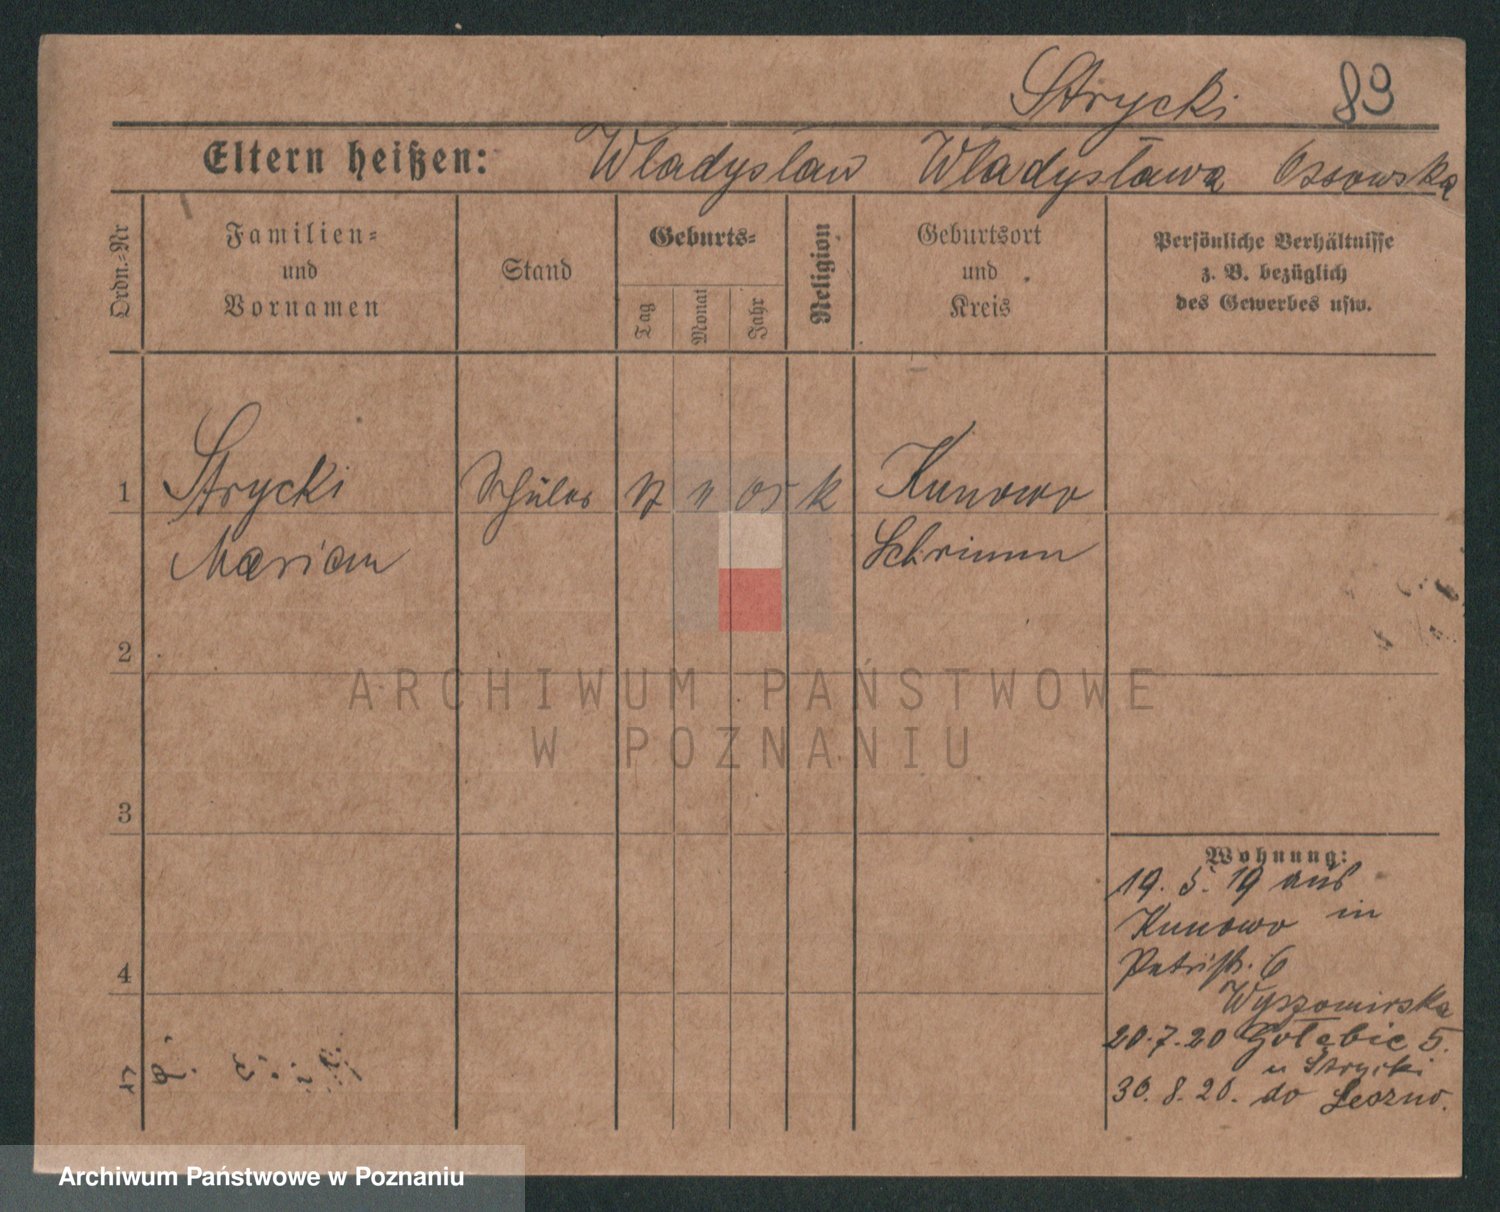 Strycki 89
Eltern heißen: Władysław Władysława Ossowska
Ordn.-Nr
Familien-
und
Vornamen
Stand
Geburts-
Tag
Monat
Jahr
Religion
Geburtsort
und
Kreis
Persönliche Verhältnisse
z. B. bezüglich
des Gewerbes usw.
1 Strycki Schüler 11 05 k Kunowo
Marian Schrimm
2
ARCHIWUM PAŃSTWOWE
W POZNANIU
3
Wohnung:
19. 5. 19 aus
Kunowo in
Petristr. 6
4
Wyszomirska
20.7.20 Gołębie 5.
u Strycki
30. 8. 20. do Leszno.
Archiwum Państwowe w Poznaniu